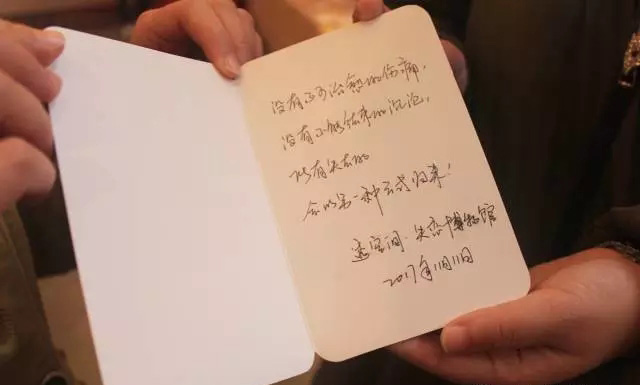 没有不可治愈的伤痛，
没有不能结束的沉沦，
所有失去的
会以另一种方式归来！
失恋博物馆
2017年11月11日